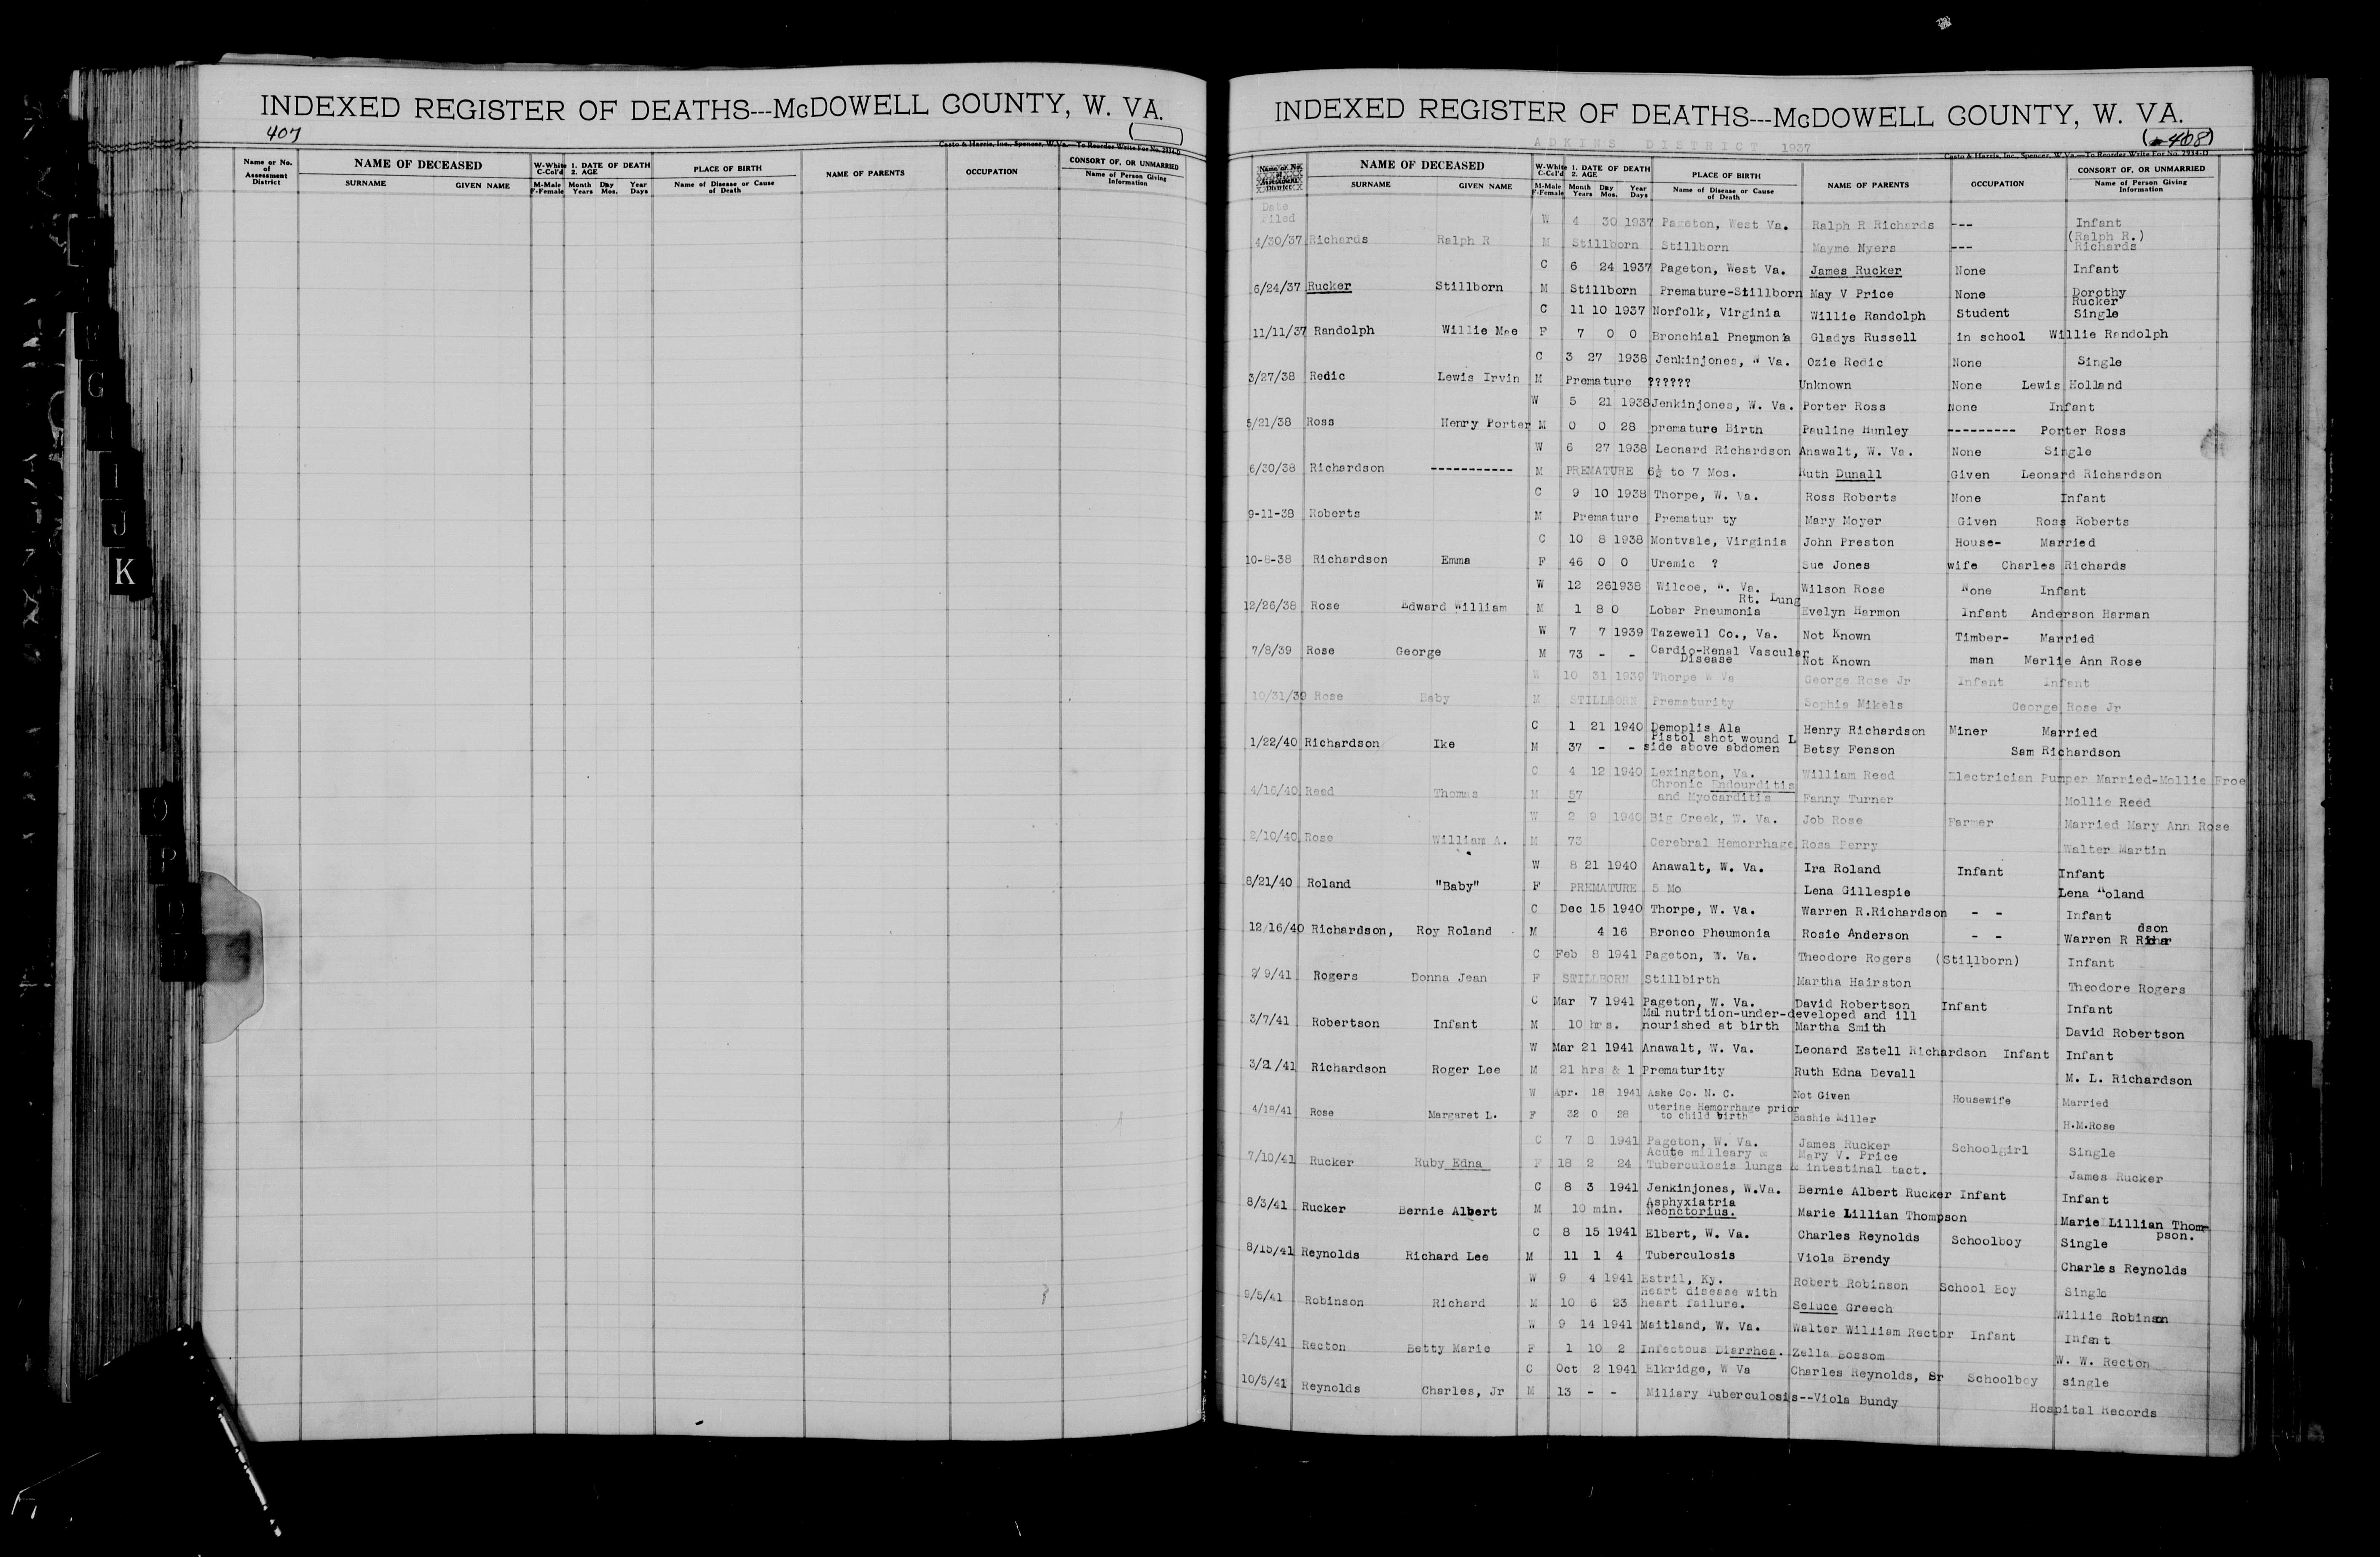 INDEXED REGISTER OF DEATHS---McDOWELL COUNTY, W. VA.
407
Casto & Harris, Inc., Spencer, W. Va.—To Reorder Write For No. 2914-D
Name or No. of Assessment District
NAME OF DECEASED
SURNAME GIVEN NAME
W-White C-Col'd
M-Male F-Female
1. DATE OF DEATH
2. AGE
Month Day Year
Years Mos. Days
PLACE OF BIRTH
Name of Disease or Cause of Death
NAME OF PARENTS
OCCUPATION
CONSORT OF, OR UNMARRIED
Name of Person Giving Information
G
I
J
K
O
P
INDEXED REGISTER OF DEATHS---McDOWELL COUNTY, W. VA.
408
ADKINS DISTRICT 1937
Casto & Harris, Inc., Spencer, W. Va.—To Reorder Write For No. 2914-D
NAME OF DECEASED
SURNAME GIVEN NAME
W-White C-Col'd
M-Male F-Female
1. DATE OF DEATH
2. AGE
Month Day Year
Years Mos. Days
PLACE OF BIRTH
Name of Disease or Cause of Death
NAME OF PARENTS
OCCUPATION
CONSORT OF, OR UNMARRIED
Name of Person Giving Information
Date Filed
W 4 30 1937 Pageton, West Va. Ralph R Richards --- Infant
4/30/37 Richards Ralph R M Stillborn Stillborn Mayme Myers --- (Ralph R.) Richards
C 6 24 1937 Pageton, West Va. James Rucker None Infant
6/24/37 Rucker Stillborn M Stillborn Premature-Stillborn May V Price None Dorothy Rucker
C 11 10 1937 Norfolk, Virginia Willie Randolph Student Single
11/11/37 Randolph Willie Mae F 7 0 0 Bronchial Pneumonia Gladys Russell in school Willie Randolph
C 3 27 1938 Jenkinjones, W Va. Ozie Redic None Single
3/27/38 Redic Lewis Irvin M Premature ?????? Unknown None Lewis Holland
W 5 21 1938 Jenkinjones, W. Va. Porter Ross None Infant
5/21/38 Ross Henry Porter M 0 0 28 premature Birth Pauline Hunley --------- Porter Ross
W 6 27 1938 Leonard Richardson Anawalt, W. Va. None Single
6/30/38 Richardson ------------ M PREMATURE 6½ to 7 Mos. Ruth Dunall Given Leonard Richardson
C 9 10 1938 Thorpe, W. Va. Ross Roberts None Infant
9-11-38 Roberts M Premature Prematur ty Mary Moyer Given Ross Roberts
C 10 8 1938 Montvale, Virginia John Preston House- Married
10-8-38 Richardson Emma F 46 0 0 Uremic ? Sue Jones wife Charles Richards
W 12 261938 Wilcoe, W. Va. Wilson Rose None Infant
12/26/38 Rose Edward William M 1 8 0 Lobar Pneumonia Rt. Lung Evelyn Harmon Infant Anderson Harman
W 7 7 1939 Tazewell Co., Va. Not Known Timber- Married
7/8/39 Rose George M 73 - - Cardio-Renal Vascular Disease Not Known man Merlie Ann Rose
W 10 31 1939 Thorpe W Va George Rose Jr Infant Infant
10/31/39 Rose Baby M STILLBORN Prematurity Sophie Mikels George Rose Jr
C 1 21 1940 Demoplis Ala Henry Richardson Miner Married
1/22/40 Richardson Ike M 37 - - Pistol shot wound L side above abdomen Betsy Fenson Sam Richardson
C 4 12 1940 Lexington, Va. William Reed Electrician Pumper Married-Mollie Froe
4/16/40 Reed Thomas M 57 Chronic Endourditis and Myocarditis Fanny Turner Mollie Reed
W 2 9 1940 Big Creek, W. Va. Job Rose Farmer Married Mary Ann Rose
2/10/40 Rose William A. M 73 Cerebral Hemorrhage Rosa Perry Walter Martin
W 8 21 1940 Anawalt, W. Va. Ira Roland Infant Infant
8/21/40 Roland "Baby" F PREMATURE 5 Mo Lena Gillespie Lena Roland
C Dec 15 1940 Thorpe, W. Va. Warren R.Richardson - - Infant
12/16/40 Richardson, Roy Roland M 4 16 Bronco Pheumonia Rosie Anderson - - Warren R Richardson
C Feb 8 1941 Pageton, W. Va. Theodore Rogers (Stillborn) Infant
2/9/41 Rogers Donna Jean F STILLBORN Stillbirth Martha Hairston Theodore Rogers
C Mar 7 1941 Pageton, W. Va. David Robertson Infant Infant
3/7/41 Robertson Infant M 10 hrs. Malnutrition-under-developed and ill nourished at birth Martha Smith David Robertson
W Mar 21 1941 Anawalt, W. Va. Leonard Estell Richardson Infant Infant
3/21/41 Richardson Roger Lee M 21 hrs & 1 Prematurity Ruth Edna Devall M. L. Richardson
W Apr. 18 1941 Ashe Co. N. C. Not Given Housewife Married
4/18/41 Rose Margaret L. F 32 0 28 uterine Hemorrhage prior to child birth Bashie Miller H.M.Rose
C 7 8 1941 Pageton, W. Va. James Rucker Schoolgirl Single
7/10/41 Rucker Ruby Edna F 18 2 24 Acute milleary & Tuberculosis lungs & intestinal tact. Mary V. Price James Rucker
C 8 3 1941 Jenkinjones, W.Va. Bernie Albert Rucker Infant Infant
8/3/41 Rucker Bernie Albert M 10 min. Asphyxiatria Neonctorius. Marie Lillian Thompson Marie Lillian Thompson.
C 8 15 1941 Elbert, W. Va. Charles Reynolds Schoolboy Single
8/15/41 Reynolds Richard Lee M 11 1 4 Tuberculosis Viola Brendy Charles Reynolds
W 9 4 1941 Estril, Ky. Robert Robinson School Boy Single
9/5/41 Robinson Richard M 10 6 23 heart disease with heart failure. Seluce Greech Willie Robinson
W 9 14 1941 Maitland, W. Va. Walter William Rector Infant Infant
9/15/41 Recton Betty Marie F 1 10 2 Infectous Diarrhea. Zella Bossom W. W. Recton
C Oct 2 1941 Elkridge, W Va Charles Reynolds, Sr Schoolboy single
10/5/41 Reynolds Charles, Jr M 13 - - Miliary Tuberculosis--Viola Bundy Hospital Records